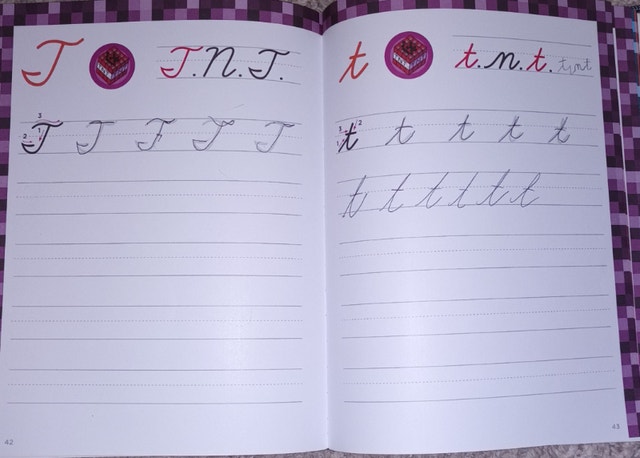 T
T.N.T.
3
2 1 T T F T T
42
t
t.n.t. t,nt
3 2
1 t t t t t
t t t t t t
43